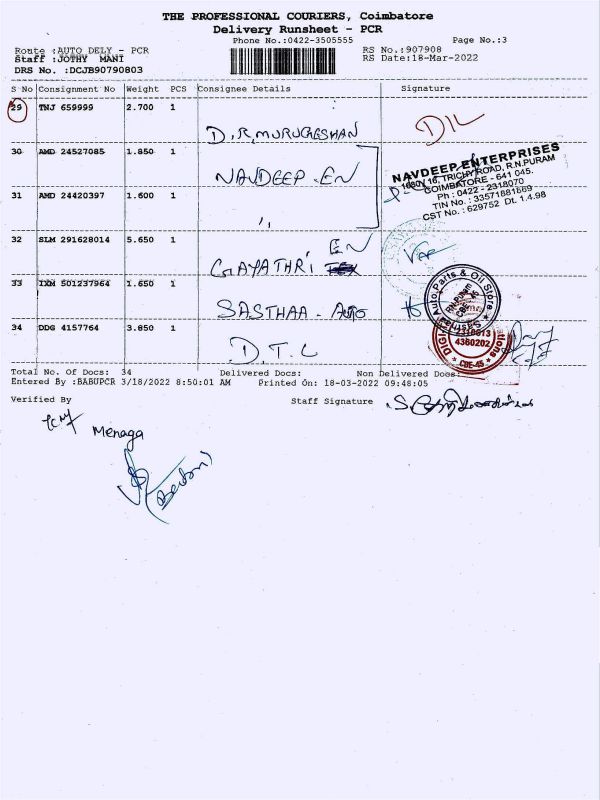 THE PROFESSIONAL COURIERS, Coimbatore
Delivery Runsheet - PCR
Phone No.:0422-3505555 Page No.:3
Route :AUTO DELY - PCR RS No.:907908
Staff :JOTHY MANI RS Date:18-Mar-2022
DRS No. :DCJB90790803
S No Consignment No Weight PCS Consignee Details Signature
29 TNJ 659999 2.700 1
D.R.MURUGESHAN DIL
30 AMD 24527085 1.850 1
NAVDEEP.EN
NAVDEEP ENTERPRISES
1680/ 16, TRICHY ROAD, R.N.PURAM
COIMBATORE - 641 045.
Ph : 0422 - 2318070
TIN No. : 33571881669
CST No. : 629752 Dt. 1.4.98
31 AMD 24420397 1.600 1
,,
32 SLM 291628014 5.650 1
GAYATHRI EN
33 IXM 501237964 1.650 1
SASTHAA - Auto
Auto Parts & Oil Store
34 DDG 4157764 3.850 1
D.T.C
4360202
CBE-45
Total No. Of Docs: 34 Delivered Docs: Non Delivered Docs:
Entered By :BABUPCR 3/18/2022 8:50:01 AM Printed On: 18-03-2022 09:48:05
Verified By Staff Signature
Menaga